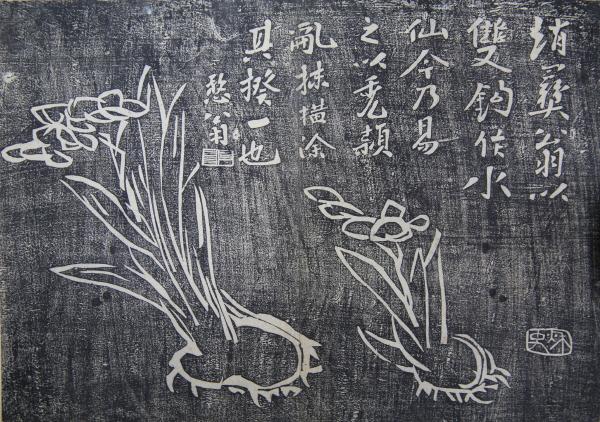 趙彝翁以
雙鈎作水
仙今乃易
之以禿穎
亂抹橫涂
其揆一也
翁